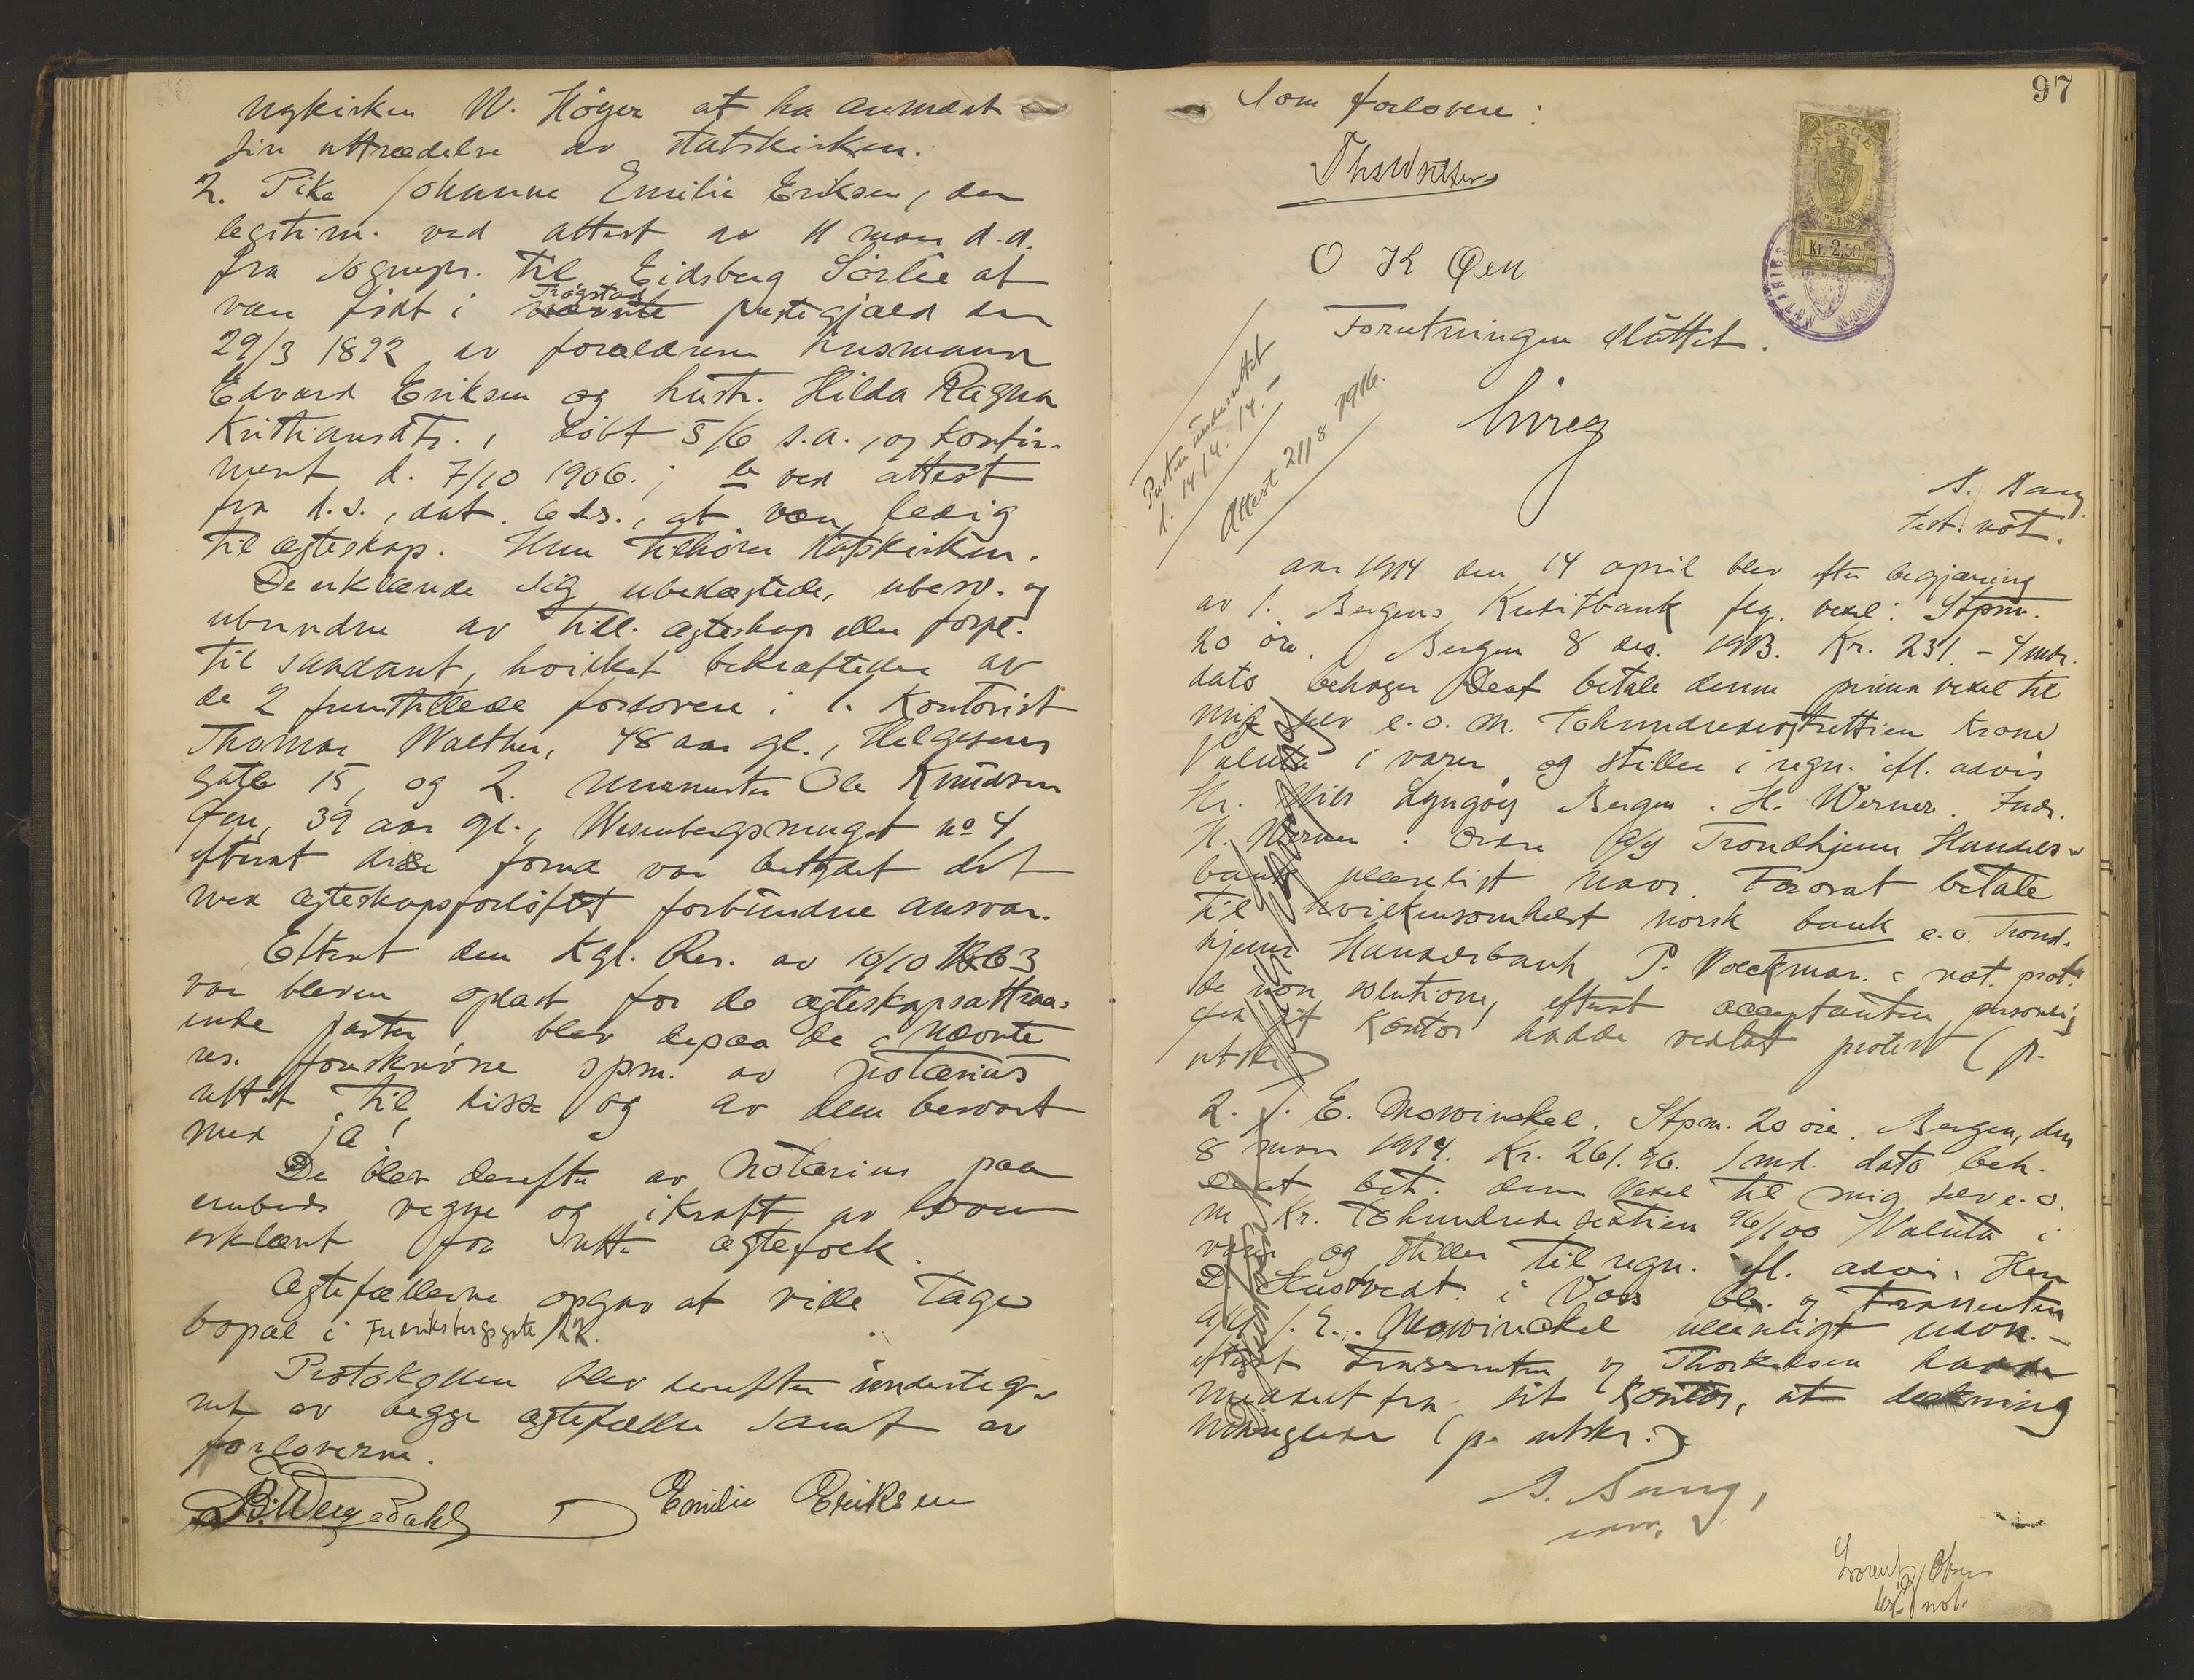 Nykirken W. Höyer at ha anmeldt
sin uttrædelse av statskirken.
2. Pike Johanne Emilie Eriksen, der
legitim. ved attest av 11 mars d.a.
fra sognepr. til Eidsberg Sörlie at
være födt i nævnte Trøgstad prestegjæld den
29/3 1892 av forældrene husmand
Edvard Eriksen og hustr. Hilda Ragna
Kristiansdtr., döbt 5/6 s.a., og konfir-
mert d. 7/10 1906.; b ved attest
fra d.s., dat. ads., at være ledig
til ægteskap. Hun tilhörer statskirken.
De erklærede sig ubeslægtede, ubesv. og
ubundne av tidl. ægteskap eller forpl.
til saadant, hvilket bekræftedes av
de 2 fremstillede forlovere: 1. Kontorist
Thomas Walther, 48 aar gl., Helgesens
gate 15, og 2. Ole Knudsen
Øen, 39 aar gl., Wesenbergsmuget no 4,
efterat disse forud var betydet det
med ægteskapsforløftet forbundne ansvar.
Efterat den Kgl. Res. av 10/10 1863
var bleven oplæst for de ægteskapsattraa-
ende parter, blev depaa de i nævnte
res. foreskrevne spm. av notarius
rettet til disse og av dem besvart
med ja!
De blev derefter av notarius paa
embeds vegne og i kraft av loven
erklært for rette ægtefolk.
Ægtefællerne opgav at ville tage
bopæl i Fredriksbergsgate 22.
Protokollen blev derefter underteg-
net av begge ægtefæller samt av
forloverne.
Emilie Eriksen
97
Som forlovere:
Ths Walther
O K Øen
NORGE
Kr. 2.50
Forretningen sluttet.
Parten underrettet
d. 14/4. 14.
Attest 21/8 1916.
A. Bang
test. not.
Aar 1914 den 14 april blev efter begjæring
av 1. Bergens Kreditbank flg. vexel: Stpm.
20 öre. Bergen 8 des. 1913. Kr. 231. - 4 mdr.
dato behager De at betale denne prima vexel til
mig selv e.o. m. Tohundredeogtrettien Krone
Valuta i varer og stilles i regn. ifl. advis
Hr. Nils Lyngöy Bergen. H. Werner. Indr.
H. Werner. Ordre A/S Trondhjems Handels-
bank ulæseligt navn. Forosat betale
til hvilkensomhelst norsk bank e.o. Trond-
hjems Handelsbank P. Voeckmar. c not. prot.
de non solutione, efterat acceptanten personlig
paa sit kontor hadde vedtat protest (p.
utskr.)
2. J. E. Mowinckel. Stpm. 20 öre. Bergen, den
8 mars 1914. Kr. 261.96. 1 md. dato beh.
De at bet. denne vexel til mig selv e.o.
m Kr. Tohundrede sextien 96/100 Valuta i
varer og stilles til regn. ifl. advis. Herr
D. Hustvedt i Voss bl. og Trassenten
J. E. Mowinckel ulæseligt navn. -
efterat trassenten og Thorkelsen hadde
meddelt fra sit kontor, at dækning
manglede (p. utskr.)
A. Bang,
Lorentz Olsen
not.